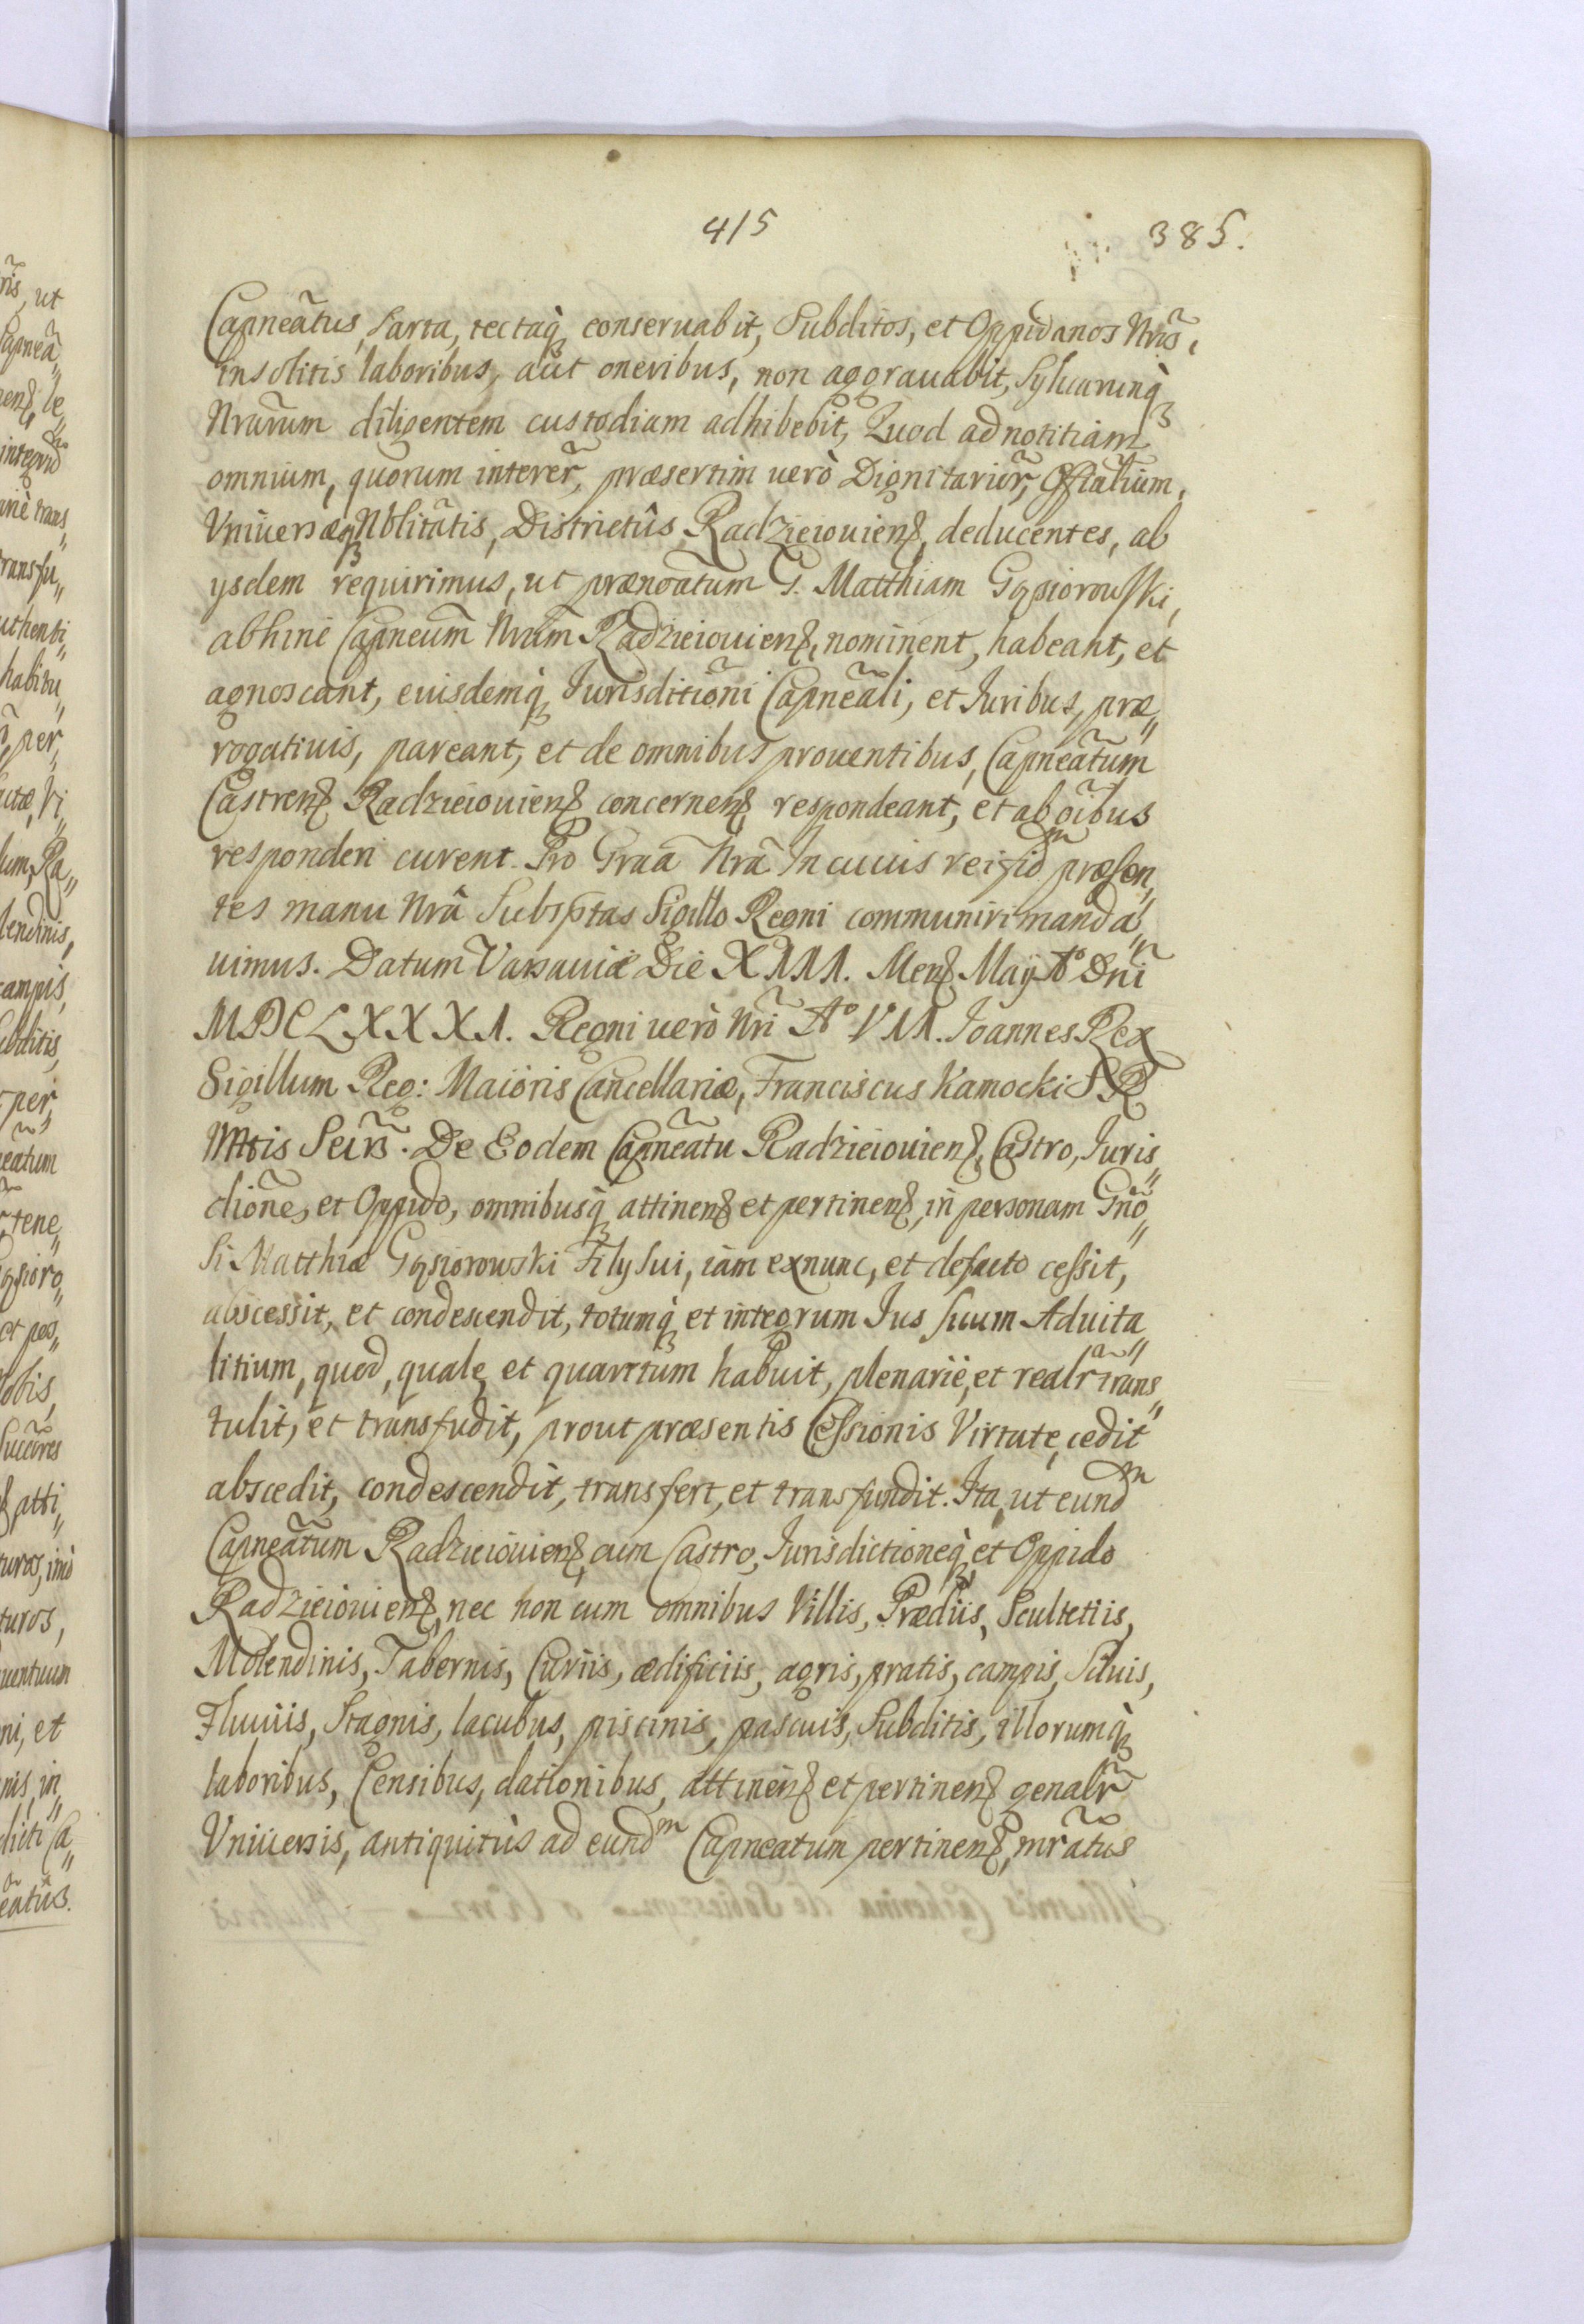 415
385.
Capneatus, Sarta, tectaq conseruabit, Subditos, et Oppidanos Nris,
insolitis laboribus, aut oneribus, non aggrauabit, Syluarumq
Nrarum diligentem custodiam adhibebit, Quod ad notitiam
omnium, quorum interer, præsertim uerò Dignitarior, Officialium,
Vniuersæq Nblitatis, Districtûs Radzieiouien, deducentes, ab
ysdem requirimus, ut prænoatum G. Matthiam Gąsiorowski,
abhinc Capneum Nrum Radzieiouien, nominent, habeant, et
agnoscant, euisdemq Iurisditioni Capneali, et Iuribus, præ„
rogatiuis, pareant, et de omnibus prouentibus, Capneatum
Castren Radzieiouien concernen respondeant, et ab oibus
responderi curent. Pro Graa Nra In cuuis rei fidm præsen„
tes manu Nrâ Subsptas Sigillo Regni communiri manda„
uimus. Datum Varsauiæ Die XIII. Men Maij Ao Dni
MDCLXXXI. Regni uerò Nri Ao VII. Joannes Rex
Sigillum Reg: Maioris Cancellariæ, Franciscus Kamocki S R
Mttis Seirs. De Eodem Capneatu Radzieiouien, Castro, Iuris„
dione, et Oppido, omnibusq attinen et pertinen, in personam Gno„
si Matthiæ Gąsiorowski Filij sui, iam exnunc, et defacto cessit,
abscessit, et condescendit, totumq et integrum Ius suum Aduita„
litium, quod, quale, et quantum habuit, plenariè, et realr trans„
tulit, et transfudit, prout præsentis Cessionis Virtute, cedit
abscedit, condescendit, transfert, et transfundit. Ita, ut eundm
Capneatum Radzieiouien, cum Castro, Iurisdictioneq, et Oppido
Radzieiouien, nec non cum omnibus Villis, Prædiis, Scultetiis,
Molendinis, Tabernis, Curiis, ædificiis, agris, pratis, campis, Siluis,
Fluuiis, Stagnis, lacubus, piscinis, pascuis, Subditis, illorumq
laboribus, Censibus, dationibus, attinen et pertinen genalr
Vniuersis, antiquitùs ad eundm Capneatum pertinen, mratus